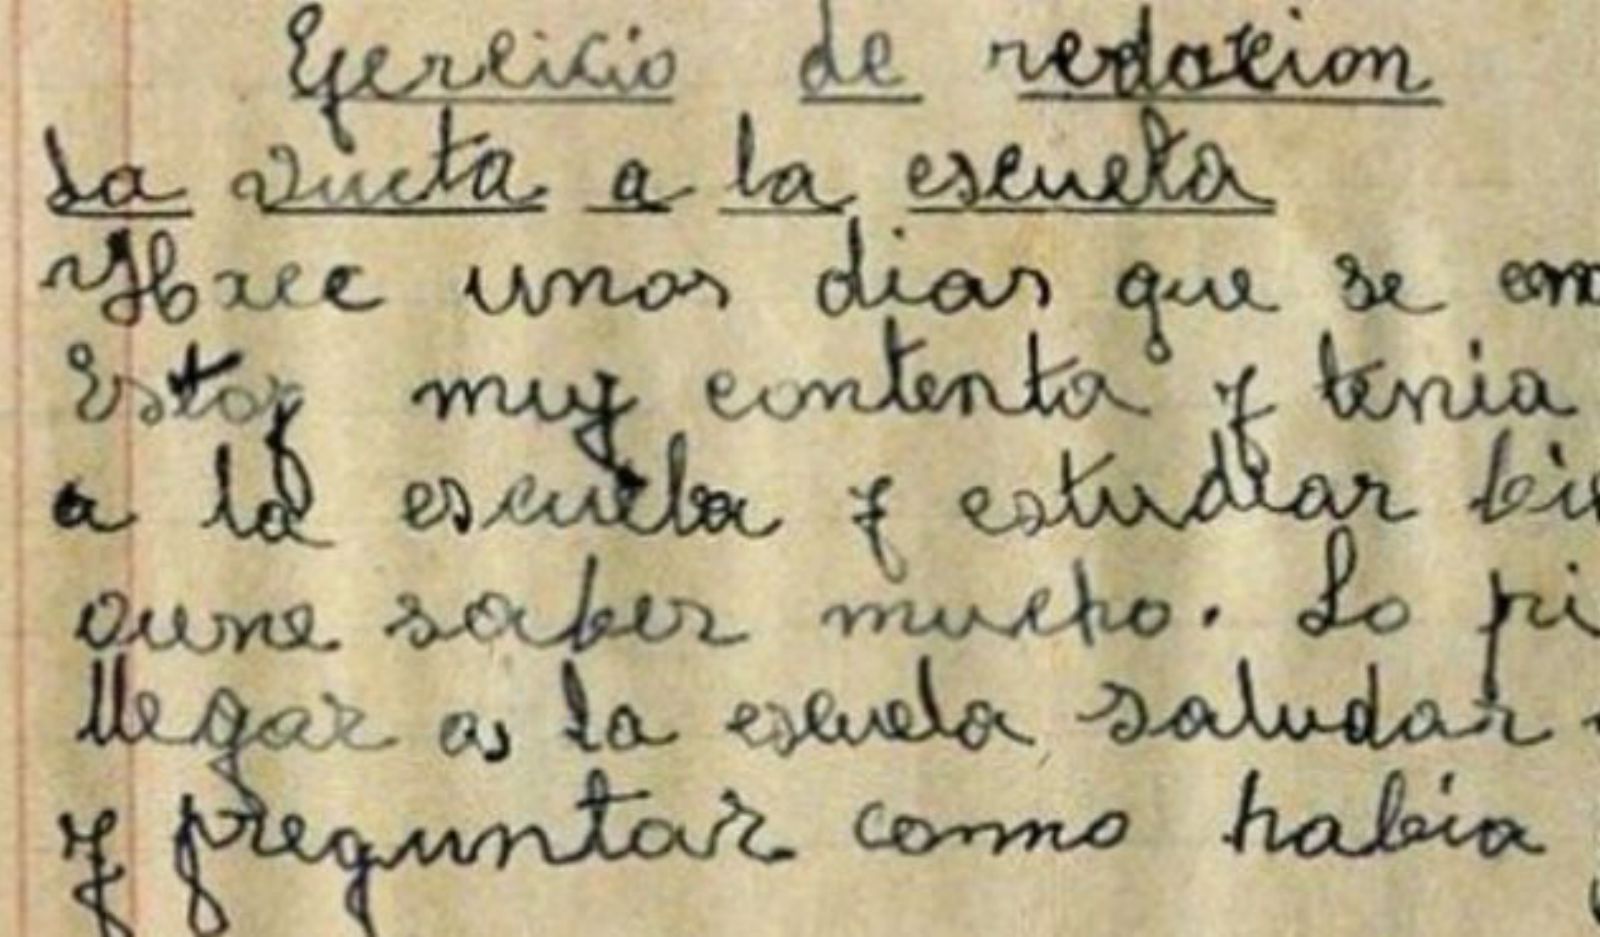 Ejercicio de redacion
La vuelta a la escuela
Hace unos dias que se
Estoy muy contenta y tenia
a la escuela y estudiar
saber mucho. Lo
llegar a la escuela saludar
y preguntar como habia